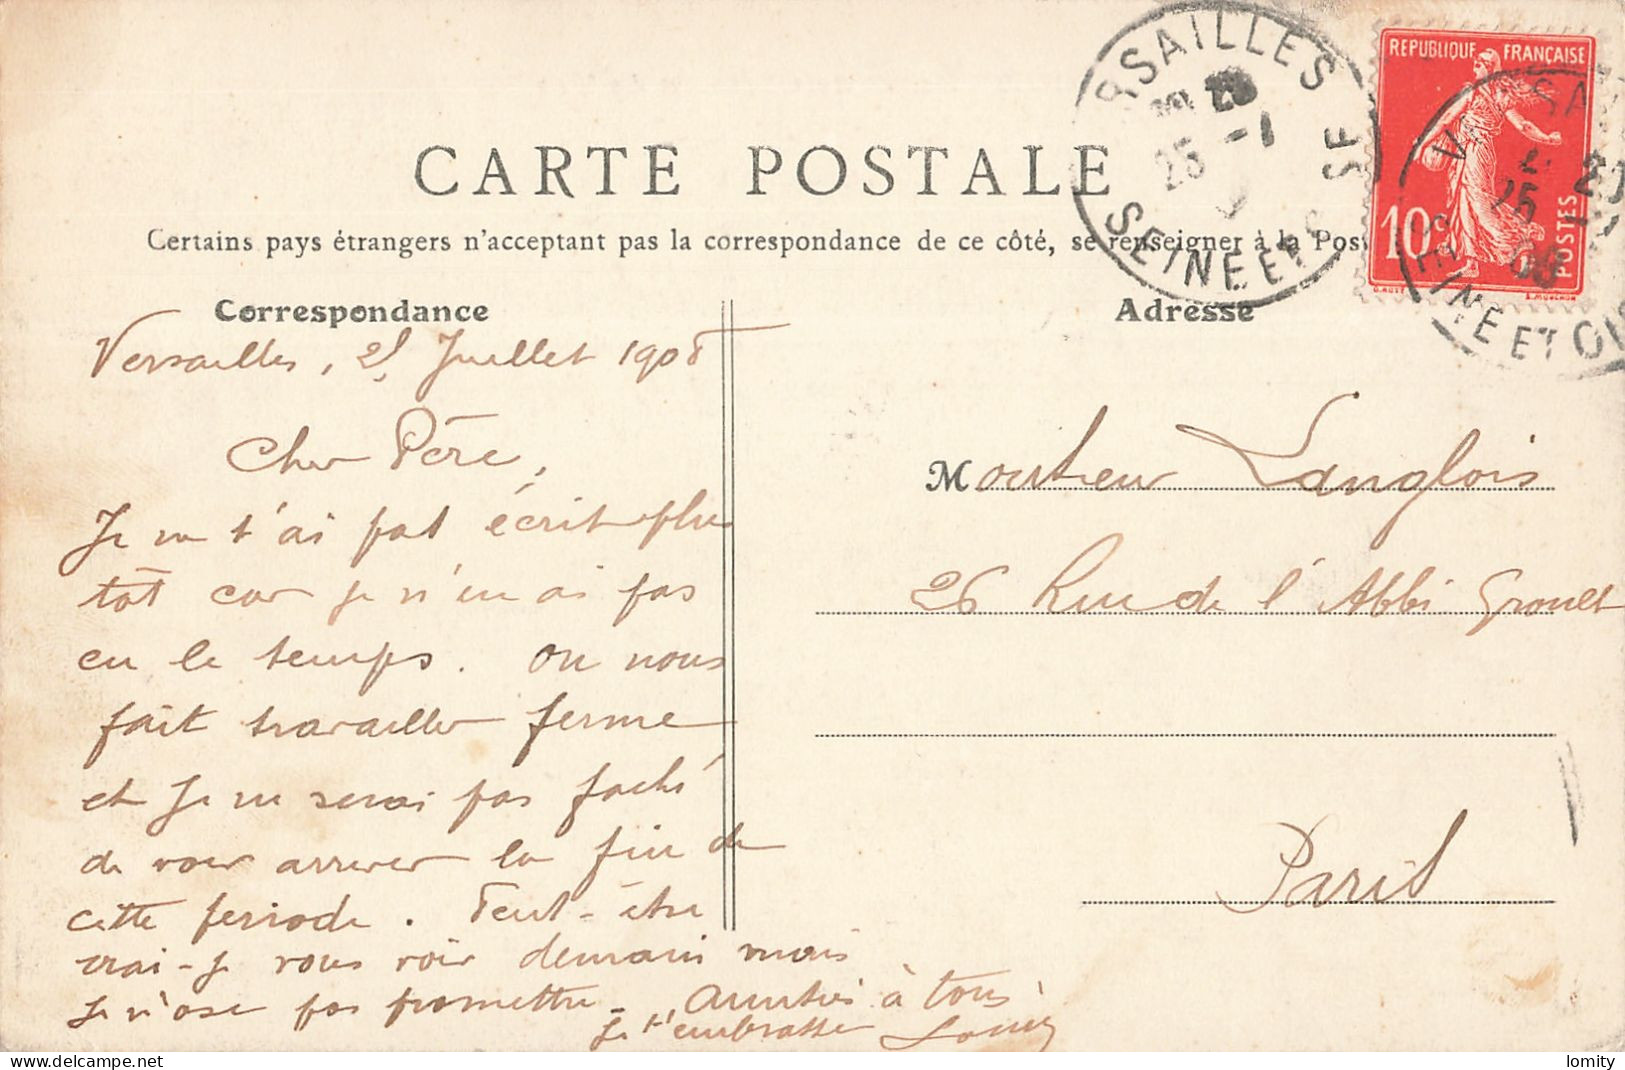 CARTE POSTALE
Certains pays étrangers n'acceptant pas la correspondance de ce côté, se renseigner à la Pos
RSAILLES
25 -1
SEINE ET
REPUBLIQUE FRANÇAISE
10c
POSTES
SEINE ET OI
Correspondance
Versailles, 25 Juillet 1908
Cher Père,
Je ne t'ai pas écrit plus
tôt car je n'en ai pas
eu le temps. On nous
fait travailler ferme
et je ne serai pas faché
de voir arriver la fin de
cette période. Peut-être
irai-je vous voir demain mais
je n'ose pas promettre. Amitiés à tous
Je t'embrasse Louis
Adresse
Monsieur Langlois
26 Rue de l'Abbé Groult
Paris
lomity